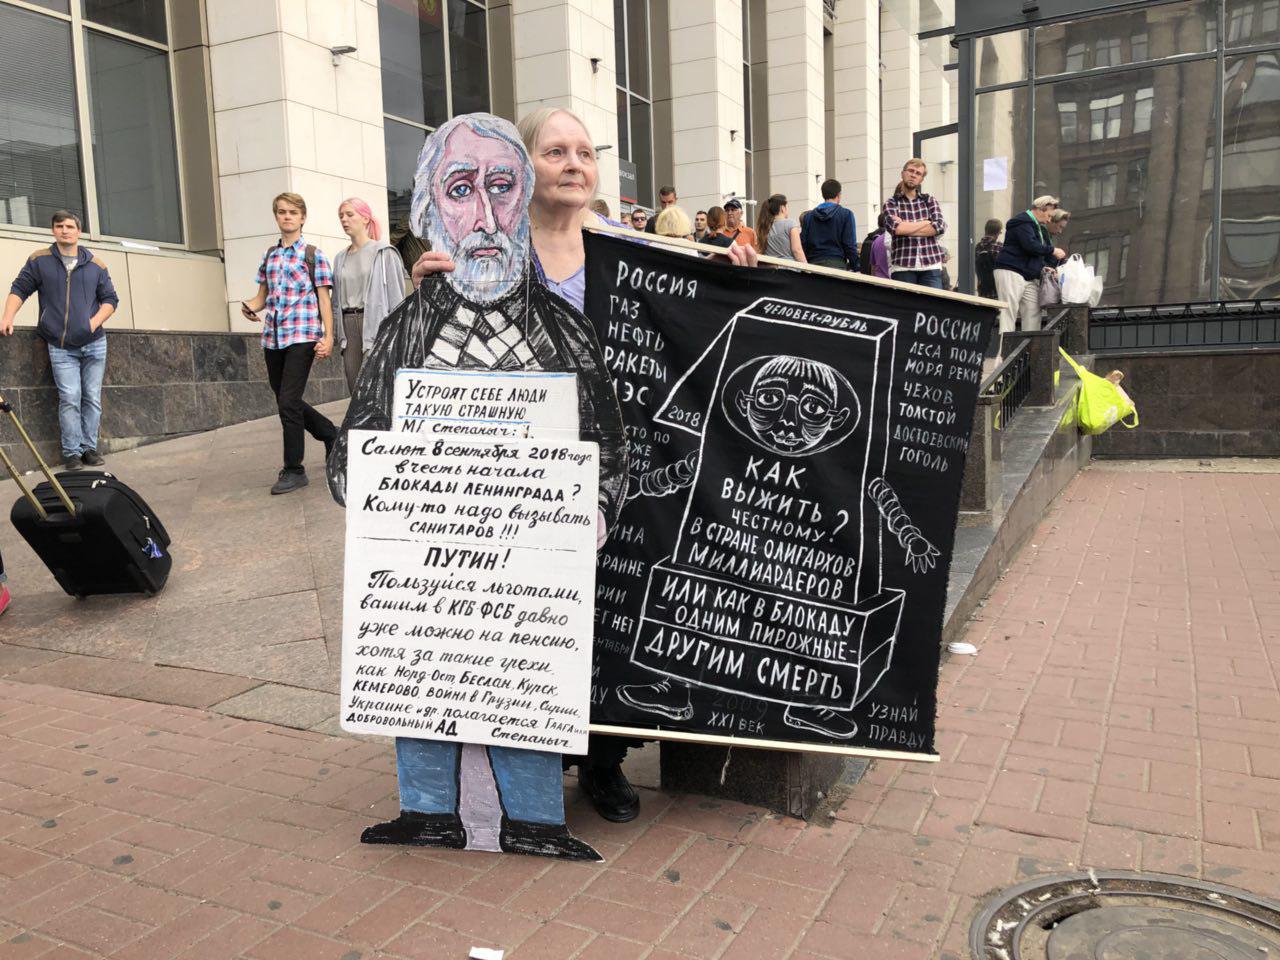 УСТРОЯТ СЕБЕ ЛЮДИ
ТАКУЮ СТРАШНУЮ
СТЕПАНЫЧ:
Салют 8 сентября 2018 года
в честь начала
БЛОКАДЫ ЛЕНИНГРАДА?
Кому-то надо вызывать
САНИТАРОВ!!!
ПУТИН!
Пользуйся льготами,
вашим в КГБ ФСБ давно
уже можно на пенсию,
хотя за такие грехи,
как Норд-Ост, Беслан, Курск,
КЕМЕРОВО, ВОЙНА В Грузии, Сирии,
Украине и др. полагается ГААГА или
ДОБРОВОЛЬНЫЙ АД Степаныч
РОССИЯ
ГАЗ
НЕФТЬ
РАКЕТЫ
2018
НЕТ
ЧЕЛОВЕК-РУБЛЬ
КАК
ВЫЖИТЬ?
ЧЕСТНОМУ?
В СТРАНЕ ОЛИГАРХОВ
МИЛЛИАРДЕРОВ
ИЛИ КАК В БЛОКАДУ
-ОДНИМ ПИРОЖНЫЕ-
ДРУГИМ СМЕРТЬ
2009
XXI ВЕК
РОССИЯ
ЛЕСА ПОЛЯ
МОРЯ РЕКИ
ЧЕХОВ
ТОЛСТОЙ
ДОСТОЕВСКИЙ
ГОГОЛЬ
УЗНАЙ
ПРАВДУ